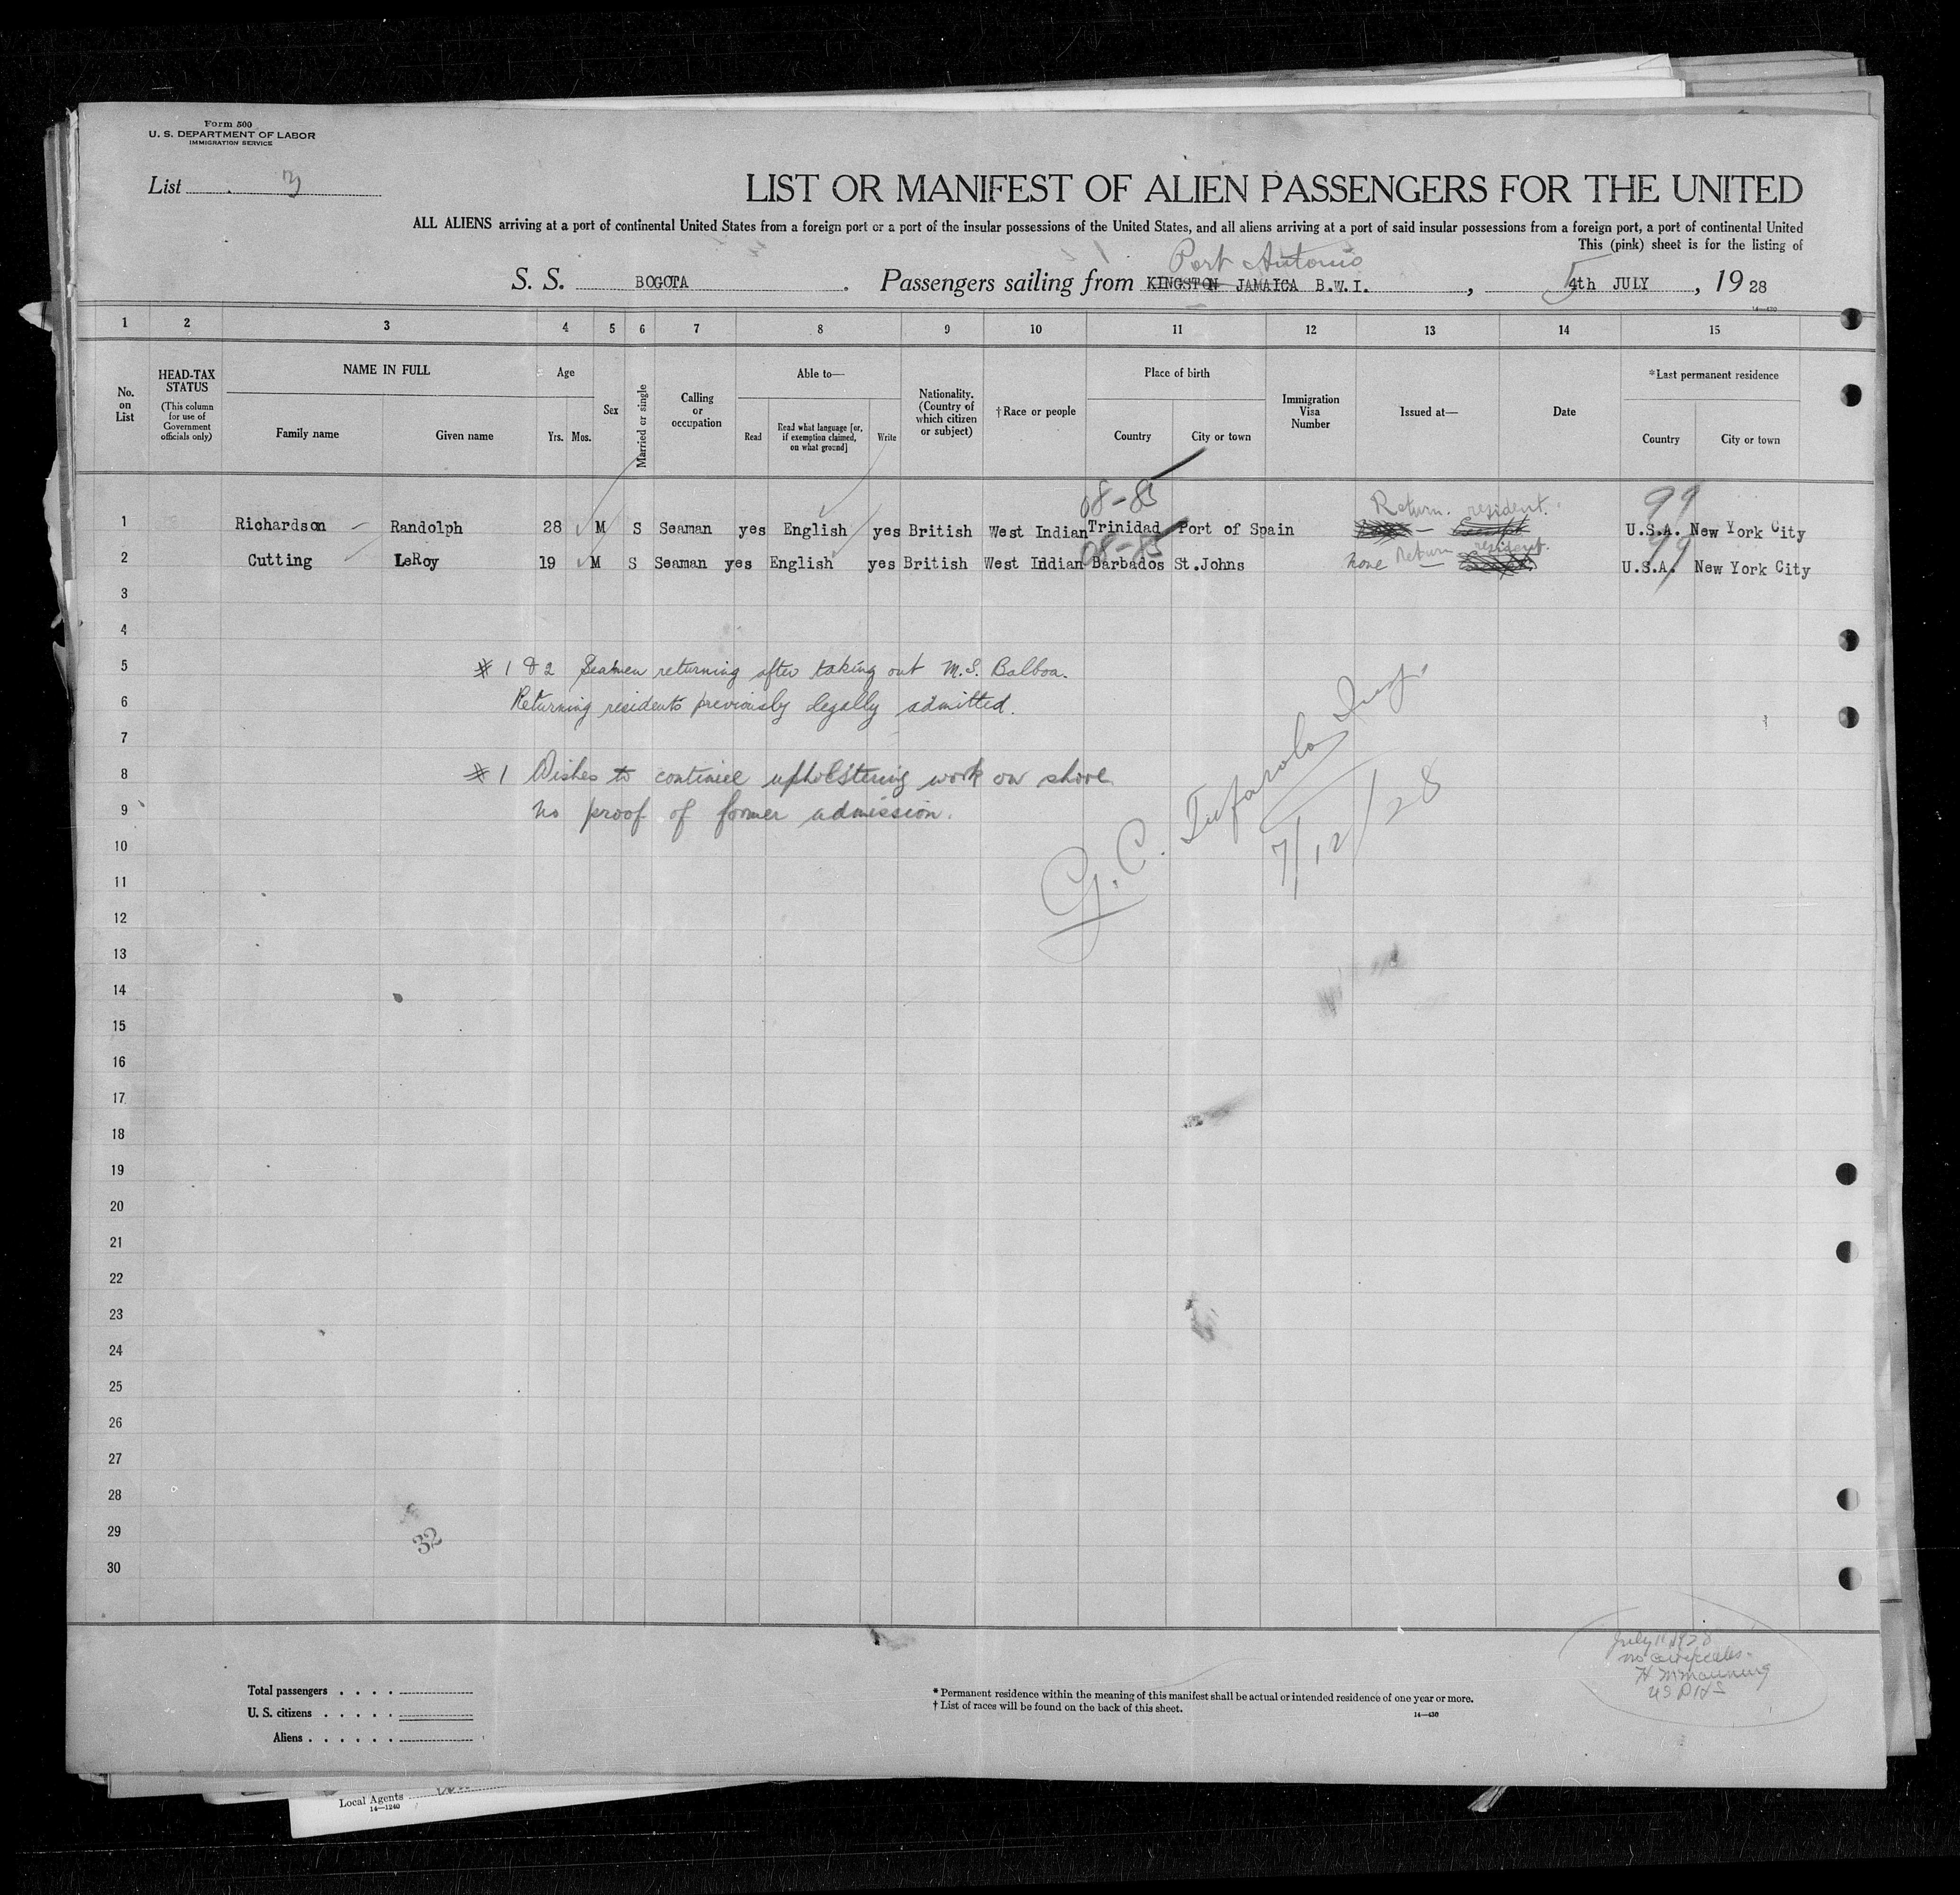 Form 500
U. S. DEPARTMENT OF LABOR
IMMIGRATION SERVICE
List 3
LIST OR MANIFEST OF ALIEN PASSENGERS FOR THE UNITED
ALL ALIENS arriving at a port of continental United States from a foreign port or a port of the insular possessions of the United States, and all aliens arriving at a port of said insular possessions from a foreign port, a port of continental United
This (pink) sheet is for the listing of
Port Antonio
S. S. BOGOTA. Passengers sailing from KINGSTON JAMAICA B.W.I., 5 4th JULY, 19 28
14—430
1 2 3 4 5 6 7 8 9 10 11 12 13 14 15
No. on List
HEAD-TAX STATUS (This column for use of Government officials only)
NAME IN FULL
Family name Given name
Age
Yrs. Mos.
Sex
Married or single
Calling or occupation
Able to—
Read
Read what language [or, if exemption claimed, on what ground]
Write
Nationality. (Country of which citizen or subject)
†Race or people
Place of birth
Country City or town
Immigration Visa Number
Issued at—
Date
*Last permanent residence
Country City or town
08-85 Return. resident. 99
1 Richardson Randolph 28 M S Seaman yes English yes British West Indian Trinidad Port of Spain U.S.A. New York City
08-85 Return resident. 99
2 Cutting LeRoy 19 M S Seaman yes English yes British West Indian Barbados St.Johns none U.S.A. New York City
3
4
5 # 1 & 2 Seamen returning after taking out M.S. Balboa.
6 Returning residents previously legally admitted.
7
8 # 1 Wishes to continue upholstering work on shore
9 no proof of former admission.
G. C. Tufarolo Insp.
7/12/28
10
11
12
13
14
15
16
17
18
19
20
21
22
23
24
25
26
27
28
29
32
30
July 11 1928
no certificates.
H M Manning
USPHS
Total passengers . . . .
U. S. citizens . . . . .
Aliens . . . . . .
* Permanent residence within the meaning of this manifest shall be actual or intended residence of one year or more.
† List of races will be found on the back of this sheet.
14—430
Local Agents
14—1240